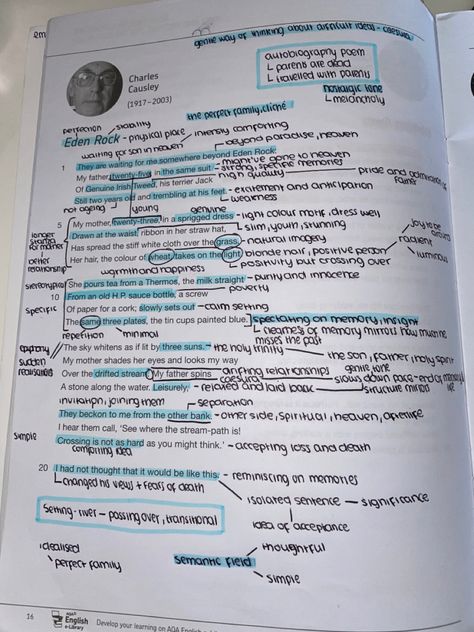 gentle way of thinking about difficult ideas - caesura
autobiography poem
↳ parents are dead
↳ travelled with parents
Charles
Causley
(1917–2003)
nostalgic tone
↳ melancholy
the perfect family, cliché
perfection
stability
Eden Rock - physical place
intensity comforting
waiting for son in heaven
beyond paradise, heaven
1 They are waiting for me somewhere beyond Eden Rock:
might've gone to heaven
My father, twenty-five, in the same suit - strong, specific memories
Of Genuine Irish Tweed, his terrier Jack
high quality
pride and admiration
father
Still two years old and trembling at his feet. - excitement and anticipation
weakness
not ageing
young
genuine
5 My mother, twenty-three, in a sprigged dress - light colour motif, dress well
Drawn at the waist, ribbon in her straw hat, slim, youth, stunning
Has spread the stiff white cloth over the grass. natural imagery
Her hair, the colour of wheat, takes on the light. blonde hair, positive person
joy to be around
radiant
luminous
positivity but crossing over
longer
stanza
for mother
better
relationship
warmth and happiness
stereotypical
She pours tea from a Thermos, the milk straight - purity and innocence
10 From an old H.P. sauce bottle, a screw
poverty
specific
Of paper for a cork; slowly sets out - calm setting
The same three plates, the tin cups painted blue.
spectating on memory, insight
↳ clearness of memory mirrors how much he
misses the past
repetition
minimal
epiphany
sudden
realisation
The sky whitens as if lit by three suns. - the holy trinity
the son, father, holy spirit
My mother shades her eyes and looks my way
gentle tone
Over the drifted stream. My father spins
drifting relationships
caesura
slows down pace - end of memory
15 A stone along the water. Leisurely, - relaxed and laid back
structure mirrors life
invitation, joining them
separation
They beckon to me from the other bank. - other side, spiritual, heaven, afterlife
I hear them call, 'See where the stream-path is!
simple
Crossing is not as hard as you might think.' - accepting loss and death
comforting idea
20 I had not thought that it would be like this. - reminiscing on memories
↳ changed his views + fears of death
isolated sentence - significance
idea of acceptance
Setting - river - passing over, transitional
idealised
perfect family
semantic field
thoughtful
simple
16
AQA
English
e-Library
Develop your learning on AQA English